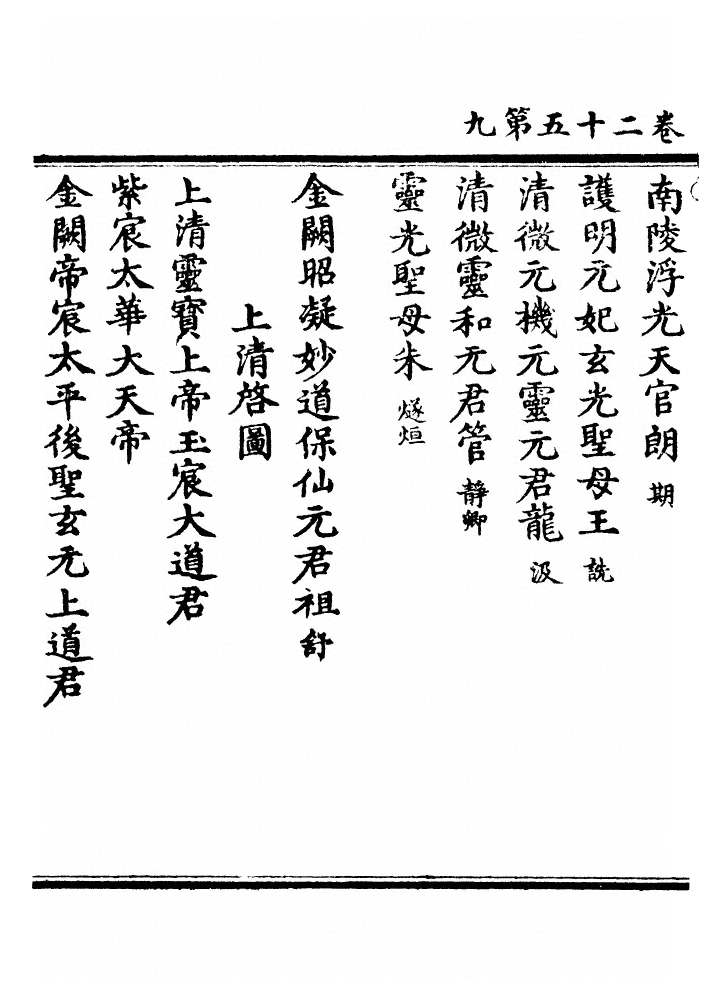 卷二十五第九
南陵浮光天官朗期
護明元妃玄光聖母王詵
清微元機元靈元君龍汲
清微靈和元君管靜卿
靈光聖母朱燧烜
金闕昭凝妙道保仙元君祖舒
上清啓圖
上清靈寶上帝玉宸大道君
紫宸太華大天帝
金闕帝宸太平後聖玄元上道君